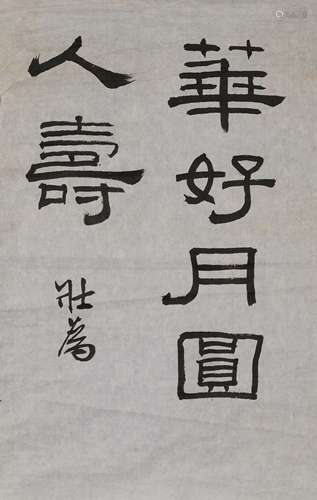 華好月圓
人壽
壯為